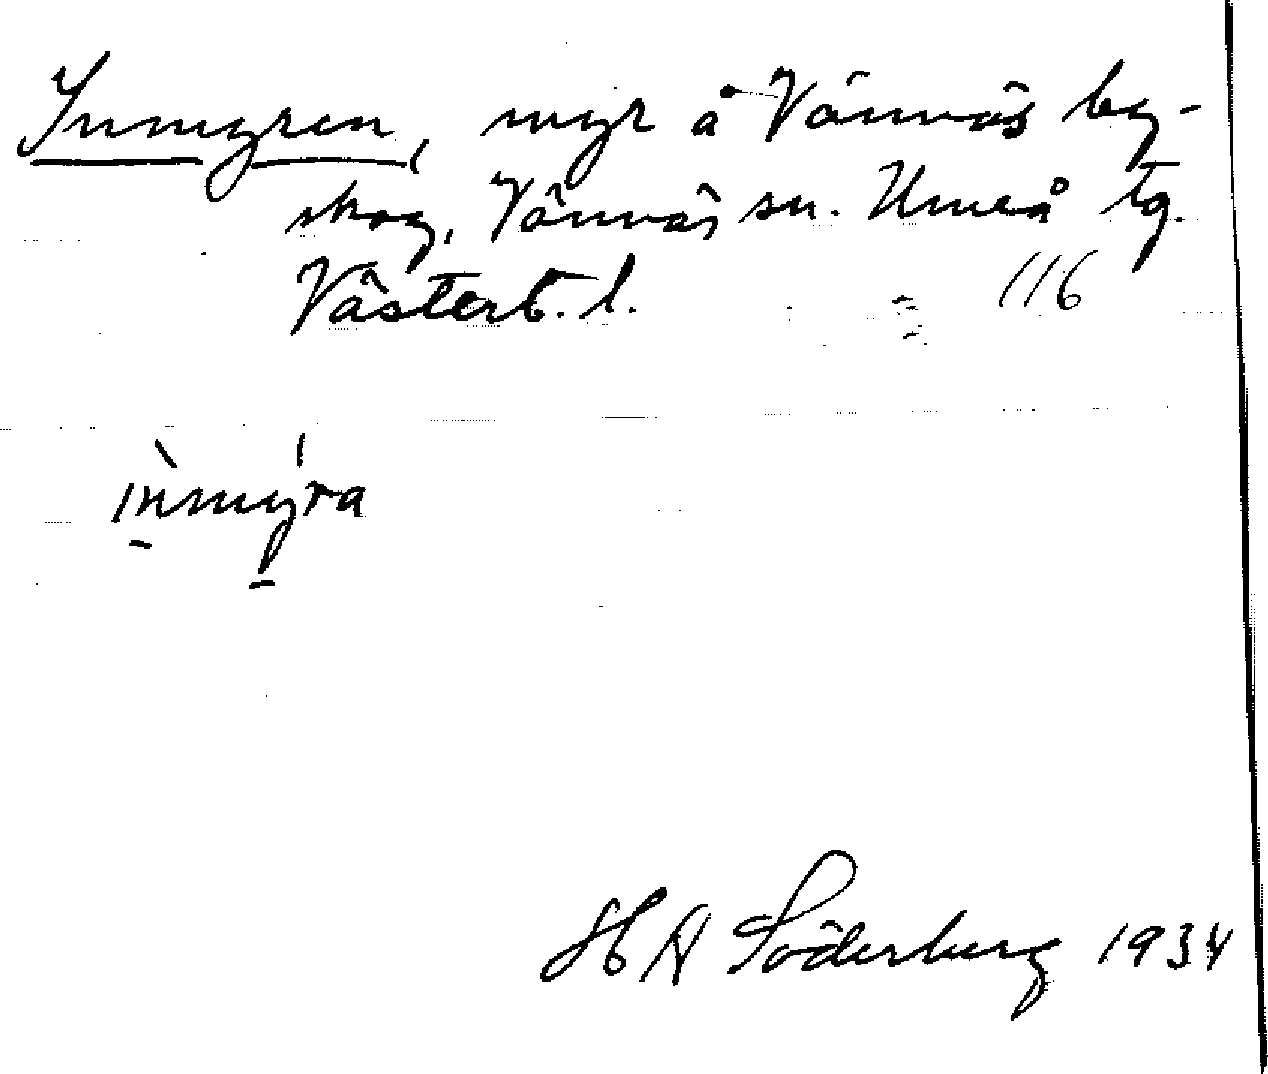 Inmyren, myr å Vännäs by-
skog, Vännäs sn. Umeå tg.
Västerb. l. 116
ìnmýra
H A Söderberg 1934